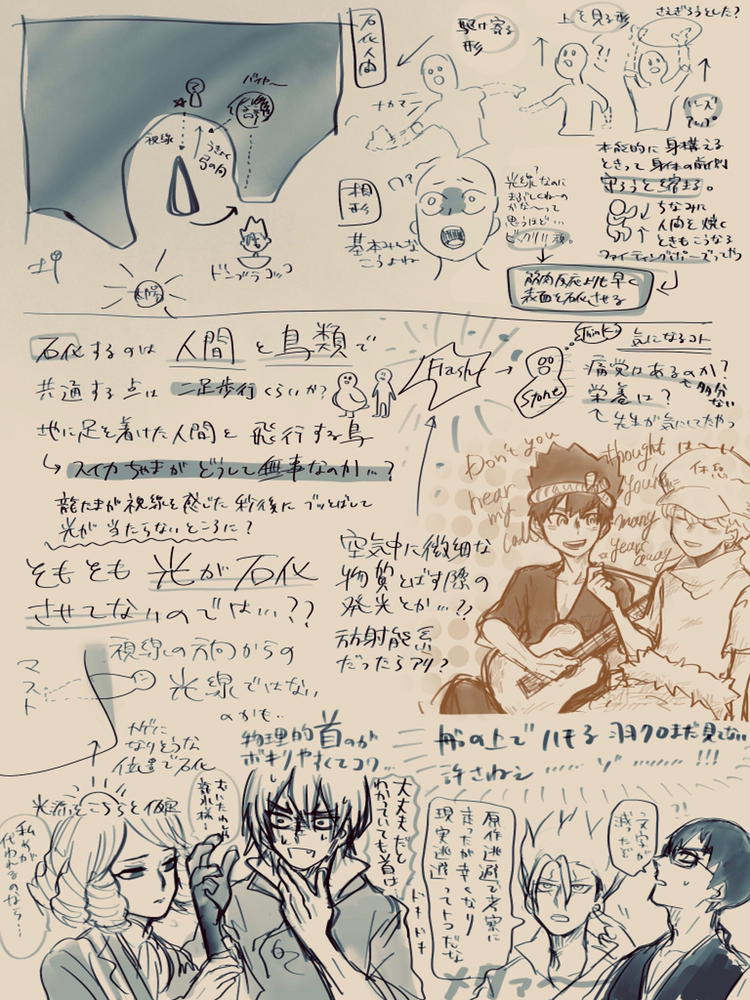 石化人間
駆け寄る
形
上を見る形
さえぎろうとした?
ナカマー
バイザー
視線
相形
基本みんな
こうよね
光線なのに
本能的に身構える
ときって身体の症例
守ろうと縮まる。
ちなみに
人間を焼く
ときもこうなる
ファイティングポーズってやつ
ビックリ顔。
筋肉反応よりも早く
表面を石化させる
ドンブラコッコ
石化するのは 人間と鳥類で
共通する点は 二足歩行くらいか?
地に足を着けた人間と 飛行する鳥
↳ スイカちゃまがどうして無事なのか…?
龍たまが視線を感じた秒後にブッとばして
光が当たらないところに?
そもそも 光が石化
させてないのでは…??
Flash!
Stone
Think
気になるコト
痛覚はあるのか?
も多分
ない
栄養は?
↑先生が気にしてたやつ
Don't you
hear
my
call
thought
you're
many
years
away
休憩
空気中に微細な
物質とばす際の
発光とか…??
放射能系
だったらアリ?
視線の方向からの
光線ではない
のかも‥
マスト
カゲに
なりそうな
位置で石化
物理的首のが
ボキリやすくてコワ…
船の上でハモる羽クロまだ見てない
許さねェ…… ゾ …… !!!
私めが
代われるのなら…
大丈夫だと
わかっていても首は
ドキドキ
原作逃避で考察に
走ったが辛くなり
現実逃避ってトコだな
文字が
減ったぞ